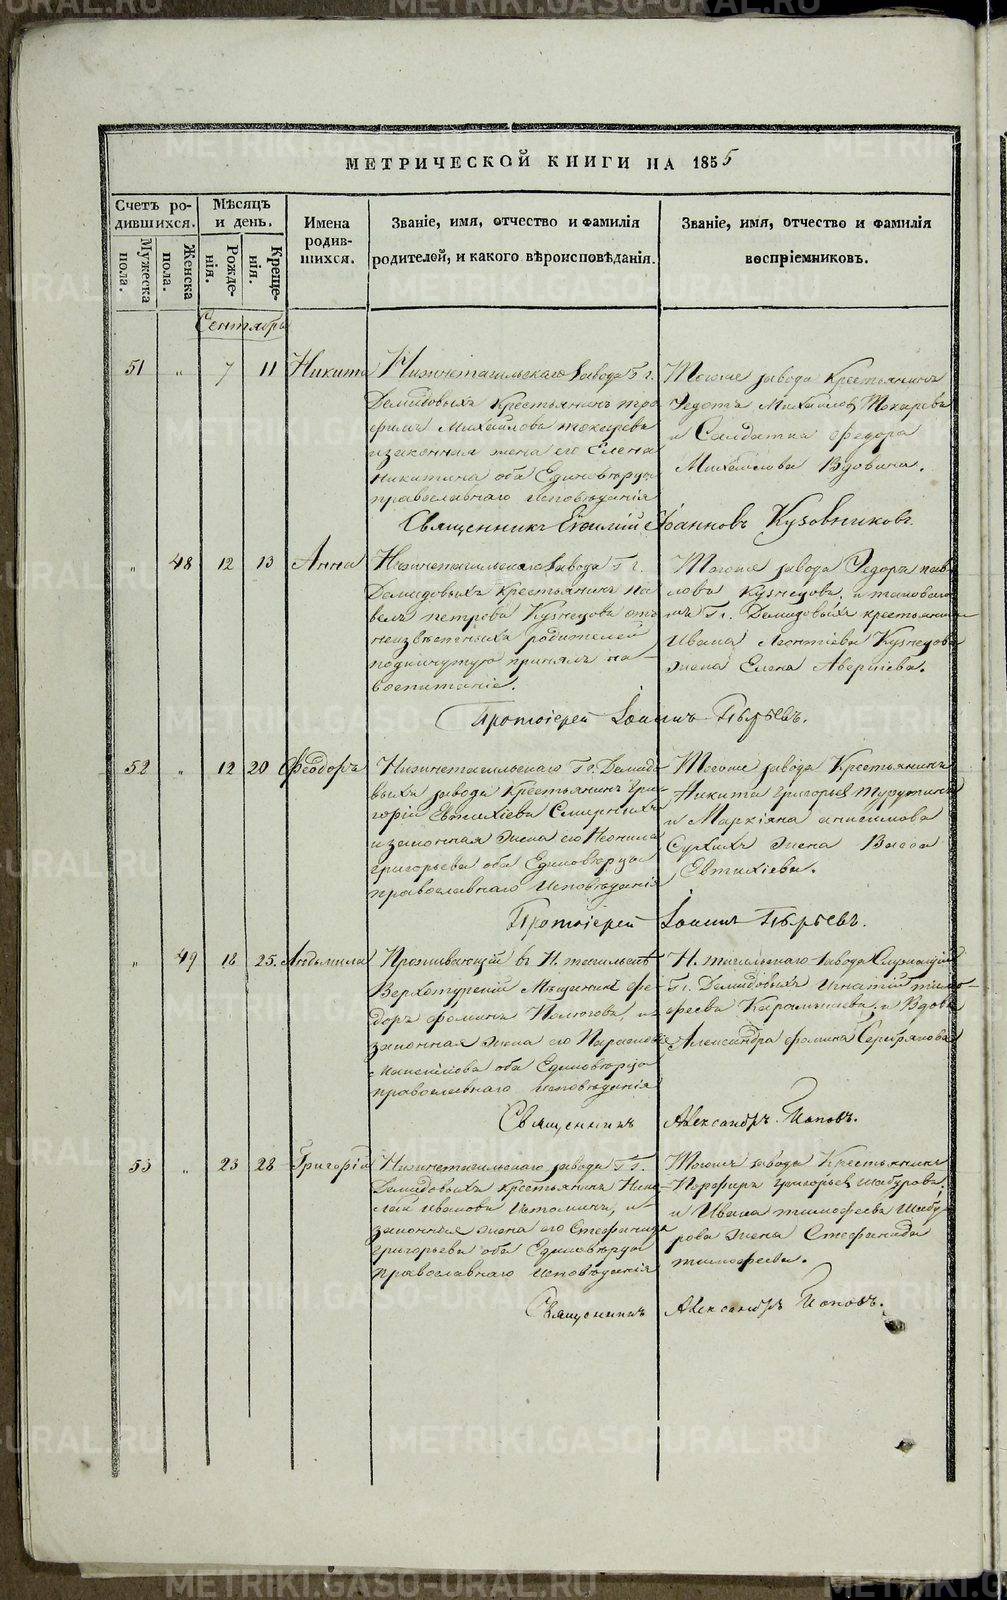 МЕТРИЧЕСКОЙ КНИГИ НА 1855
Счетъ ро-
дившихся.
Мужеска
пола.
Женска
пола.
Мѣсяцъ
и день.
Рожде-
нія.
Креще-
нія.
Имена
родив-
шихся.
Званіе, имя, отчество и фамилія
родителей, и какого вѣроисповѣданія.
Званіе, имя, отчество и фамилія
воспріемниковъ.
Сентябрь
51 " 7 11 Никита
Нижнетагильскаго завода Гг.
Демидовыхъ Крестьянинъ тро
фимъ Михайловъ токаревъ
изаконная жена его Елена
никитина оба Единовѣрцы
православнаго исповѣданія
Тогоже завода Крестьянинъ
Федотъ Михайловъ Токаревъ
и Салдатка федора
Михайлова Вдовина.
Священникъ Іоанновъ Кузовниковъ.
" 48 12 13 Анна
Нижнетагильскаго завода Гг.
Демидовыхъ Крестьянинъ па
велъ петровъ Кузнецовъ отъ
неизвѣстныхъ родителей
подкинутую принялъ на
воспитаніе.
Тогоже завода Федоръ пав-
ловъ Кузнецовъ, и таковаго
жъ Гг. Демидовыхъ крестьянина
Ивана Леонтіева Кузнецова
жена Елена Аверкіева.
Протоіерей Іоаннъ Пырьевъ.
52 " 12 20 Феодоръ
Нижнетагильскаго Гг. Демидо
выхъ завода Крестьянинъ Гри-
горій Евтихіевъ Смирныхъ
изаконная жена его Неонила
григорьева оба Единовѣрцы
православнаго Исповѣданія
Тогоже завода Крестьянинъ
Никита григорьевъ
и Маркіяна анисимова
Сухихъ жена Васса
Евтихіева.
Протоіерей Іоаннъ Пырьевъ.
" 49 18 25. Людмила
Проживающій въ Н. тагильскѣ
Верхотурскій Мѣщанинъ фе-
доръ фоминъ и
законная жена его Параскева
оба Единовѣрцы
православнаго исповѣданія
Н. тагильскаго завода Служащій
Гг. Демидовыхъ Игнатій тимо-
феевъ и Вдова
Александра фомина Серебрякова
Священникъ Александръ Поповъ.
53 " 23 28 Григорій
Нижнетагильскаго завода Гг.
Демидовыхъ крестьянинъ Нико
лай ивановъ Истоминъ, и
законная жена его Стефанида
григорьева оба Единовѣрцы
православнаго исповѣданія
Тогоже завода Крестьянинъ
Порфиръ григорьевъ шабуровъ,
и Ивана тимофеева Шабу
рова жена Стефанида
тимофеева.
Священникъ Александръ Поповъ.
METRIKI.GASO-URAL.RU